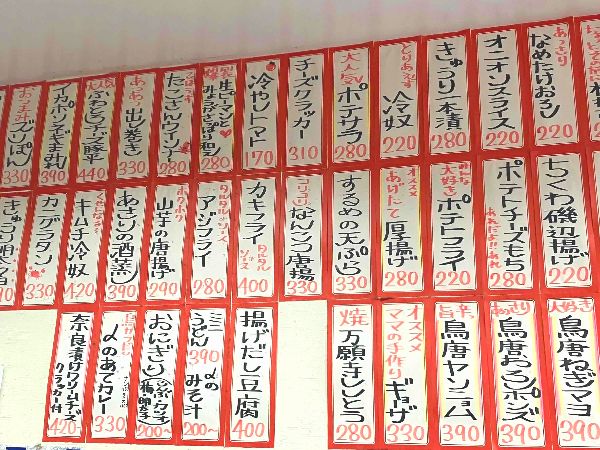 あっさり
なめたけおろし
220
オニオンスライス
220
きゅうり一本漬
280
とりあえず
冷奴
220
大人気
ポテサラ
280
チーズクラッカー
310
冷やしトマト
170
280
たこさんウィンナー
280
あつあつ
出し巻き
330
440
390
330
ちくわ磯辺揚げ
220
ポテトチーズもち
280
みんな
大好き
ポテトフライ
220
オススメ
あげたて
厚揚げ
280
するめの天ぷら
330
コリコリ
なんこつ唐揚
330
カキフライ
タルタル
ソース
400
タルタルソース
アジフライ
280
ホクホク
山芋の唐揚げ
290
あさりの酒蒸し
390
キムチ冷奴
420
カニグラタン
330
大好き
鳥唐ねぎマヨ
390
あっさり
鳥唐おろしポンズ
390
旨辛
鳥唐ヤンニョム
390
オススメ
ママの手作り
ギョウザ
330
焼
万願寺しとう
280
揚げだし豆腐
400
ミニ
うどん
390
〆の
みそ汁
200~
おにぎり
200~
〆のあてカレー
330
奈良漬けクリームチーズ
クラッカー付
420~